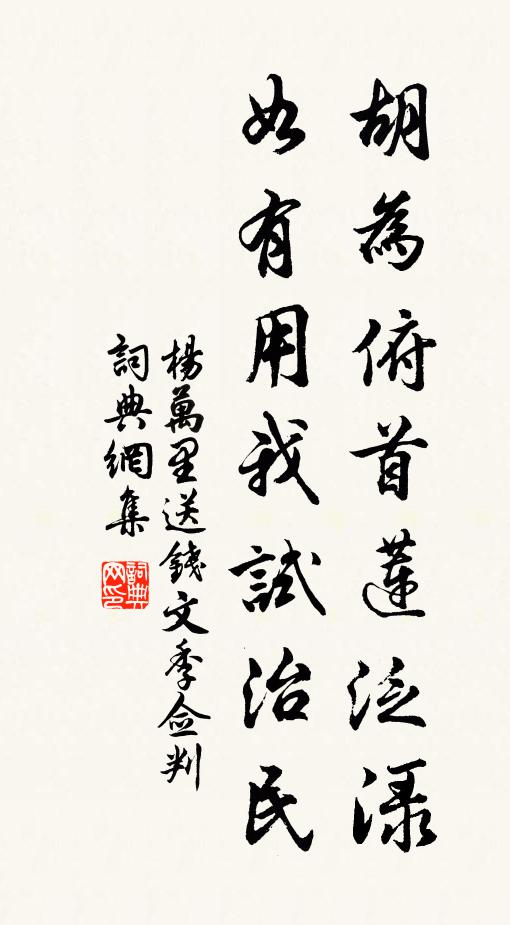 胡為俯首蓮泛渌
如有用我試治民
楊萬里送錢文季僉判
詞典網集
詞典
网印